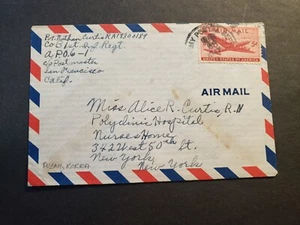 Pvt. Nathan Curtis RA
Co B 1st. Inf. Regt.
A.P.O. 6-1
c/o Postmaster
San Francisco
Calif.
AIR MAIL
5¢
UNITED STATES OF AMERICA
AIR MAIL
Miss Alice R. Curtis, R.N
Polyclinic Hospital
Nurses Home
342 West 50th St.
New York
New York
KOREA